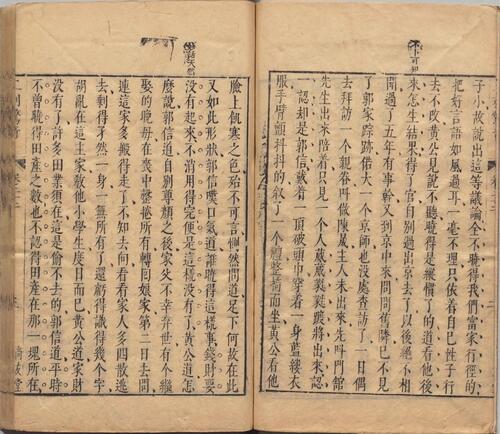 子小故說出這等議論全不曉得我們富家行徑的
把好言語如風過耳一毫不理只依着自己性子行
去不改黃公見說不聽曉得是縱慣了的道看他後
來怎生結果得了官自別過出京去了以後絕不相
聞過了五年有事幹又到京中來問問舊隣已不見
了郭家踪跡偌大一个京師也沒處查訪了一日偶
去拜訪一个親眷叫做陳晟主人未出來先叫門館
先生出來陪着只見一个人葳葳蕤蕤踱將出來認
一認却是郭信戴着一頂破頭巾穿着一身藍縷衣
服手臂顫抖抖的叙了一个禮整椅而坐黃公看他
臉上飢寒之色殆不可言惻然問道足下何故在此
又如此形狀郭信嘆口氣道誰曉得這樣事錢財要
沒有起來不消用得完便是這樣沒有了黃公道怎
麼說郭信道自別尊顏之後家父不幸弃世有个繼
娶的晚母在喪中磬捲所有轉回娘家第二日去問
連這家多搬得走了不知去向看看家人多四散逃
去剩得孑然一身一無所有了還虧得識得幾个字
胡亂在這主家教他小學生度日而已黃公道家財
沒有了許多田業須在這是偷不去的郭信道平時
不曾曉得田產之數也不認得田產在那一塊所在